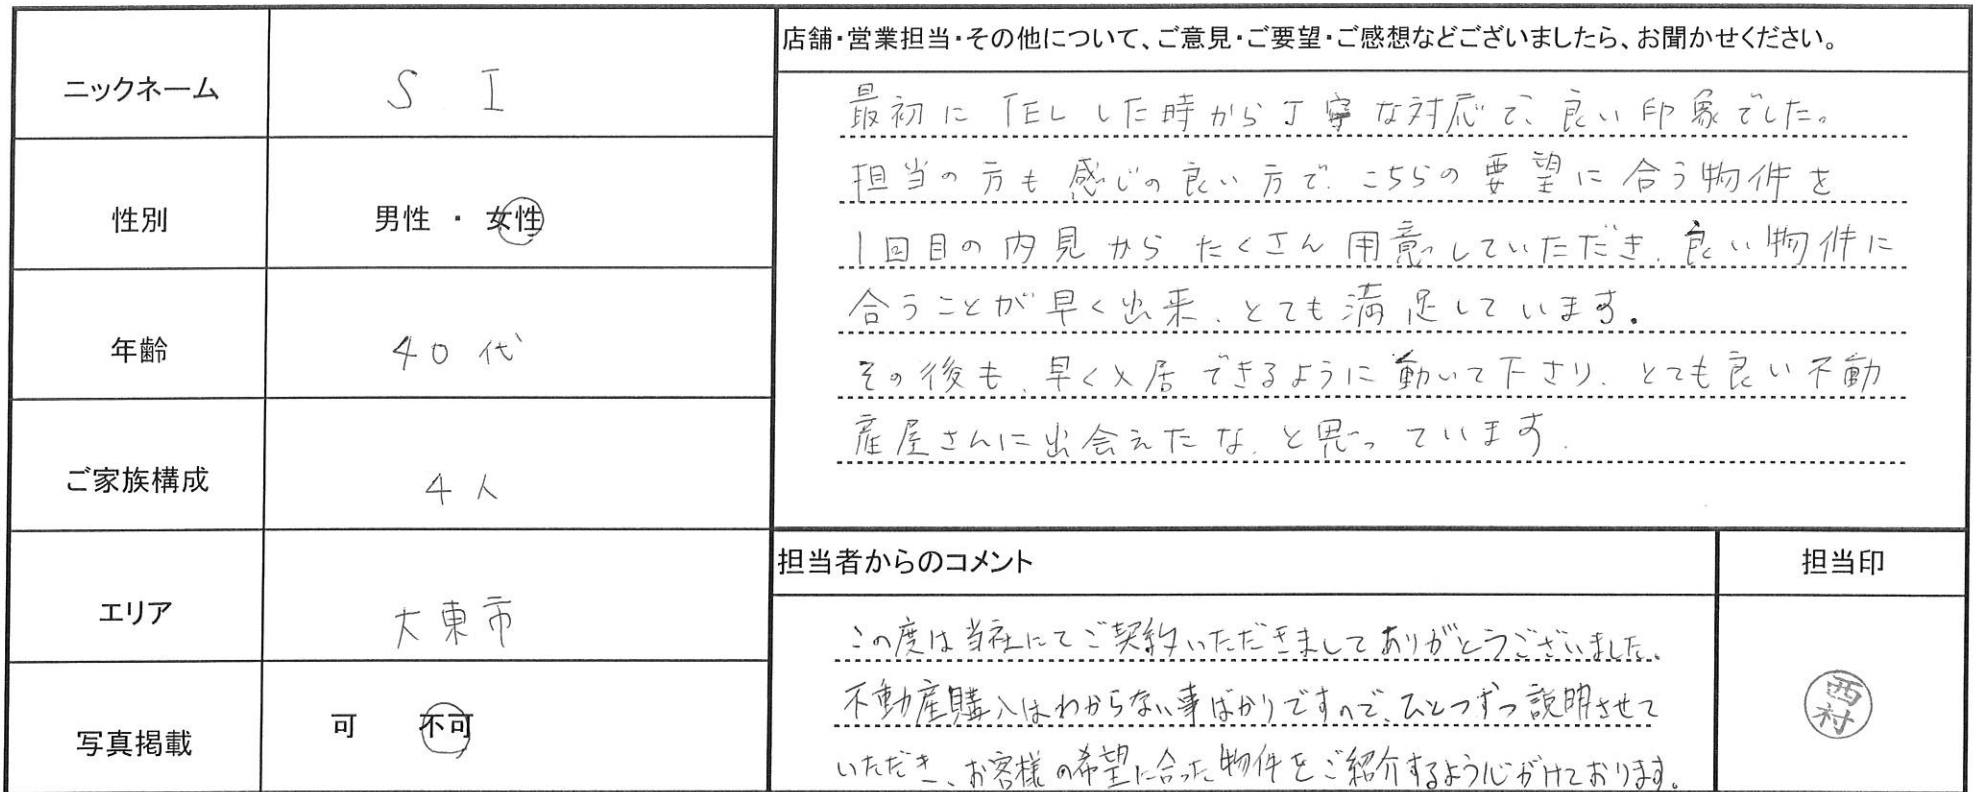 ニックネーム S I
性別 男性 ・ 女性
年齢 40代
ご家族構成 4人
エリア 大東市
写真掲載 可 不可
店舗・営業担当・その他について、ご意見・ご要望・ご感想などございましたら、お聞かせください。
最初に TEL した時から丁寧な対応で、良い印象でした。
担当の方も感じの良い方で、こちらの要望に合う物件を
1回目の内見からたくさん用意していただき、良い物件に
合うことが早く出来、とても満足しています。
その後も、早く入居できるように動いて下さり、とても良い不動
産屋さんに出会えたな、と思っています。
担当者からのコメント
この度は当社にてご契約いただきましてありがとうございました。
不動産購入はわからない事ばかりですので、ひとつずつ説明させて
いただき、お客様の希望に合った物件をご紹介するよう心がけております。
担当印
西村